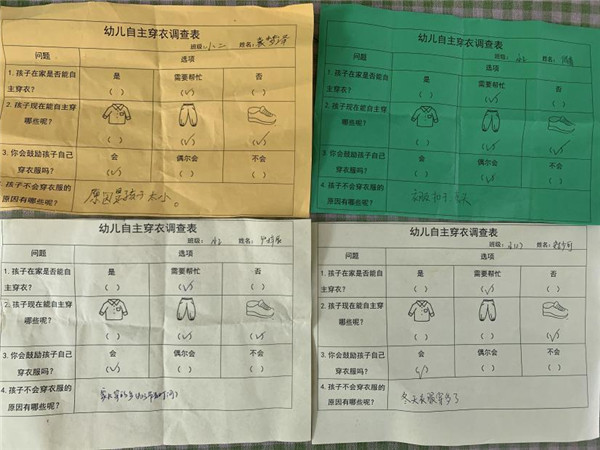 幼儿自主穿衣调查表
班级：小二 姓名：
问题 选项
1. 孩子在家是否能自主穿衣？ 是 需要帮忙 否
（ ） （√） （ ）
2. 孩子现在能自主穿哪些呢？
（ ） （ ） （√）
3. 你会鼓励孩子自己穿衣服吗？ 会 偶尔会 不会
（√） （ ） （ ）
4. 孩子不会穿衣服的原因有哪些呢？ 原因是孩子太小。
幼儿自主穿衣调查表
班级： 姓名：
问题 选项
1. 孩子在家是否能自主穿衣？ 是 需要帮忙 否
（ ） （√） （ ）
2. 孩子现在能自主穿哪些呢？
（ ） （√） （√）
3. 你会鼓励孩子自己穿衣服吗？ 会 偶尔会 不会
（√） （ ） （ ）
4. 孩子不会穿衣服的原因有哪些呢？
幼儿自主穿衣调查表
班级： 姓名：
问题 选项
1. 孩子在家是否能自主穿衣？ 是 需要帮忙 否
（ ） （√） （ ）
2. 孩子现在能自主穿哪些呢？
（ ） （√） （√）
3. 你会鼓励孩子自己穿衣服吗？ 会 偶尔会 不会
（√） （ ） （ ）
4. 孩子不会穿衣服的原因有哪些呢？
幼儿自主穿衣调查表
班级： 姓名：
问题 选项
1. 孩子在家是否能自主穿衣？ 是 需要帮忙 否
（ ） （√） （ ）
2. 孩子现在能自主穿哪些呢？
（ ） （ ） （√）
3. 你会鼓励孩子自己穿衣服吗？ 会 偶尔会 不会
（√） （ ） （ ）
4. 孩子不会穿衣服的原因有哪些呢？ 冬天衣服穿多了